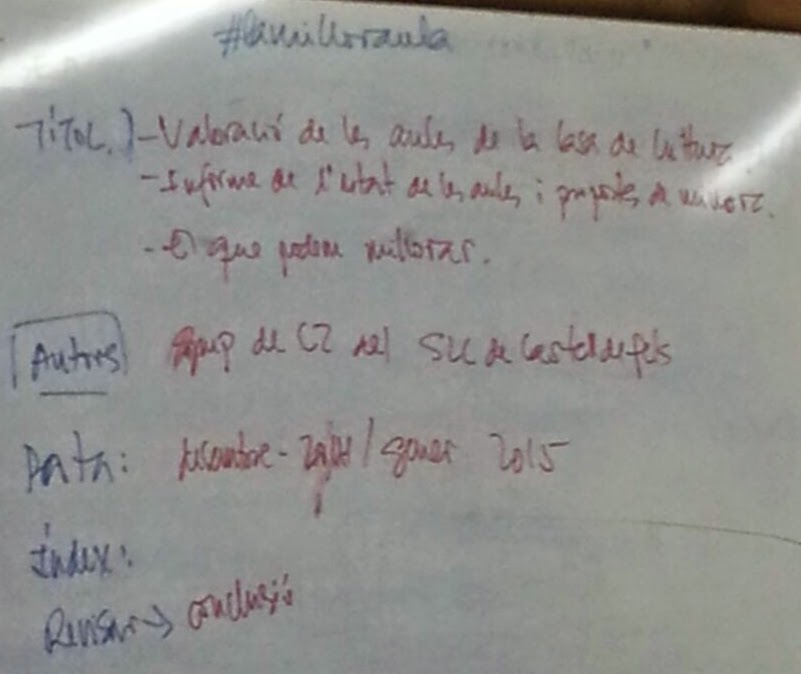 #lamilloraula
TÍTOL.) - Valoració de les aules de la Casa de Cultura.
- Informe de l'estat de les aules i propostes de millora.
- El que podem millorar.
Autors Equip de C2 del SLC de Castelldefels
Data: desembre - 2014 / gener 2015
Índex:
Revisar → conclusió